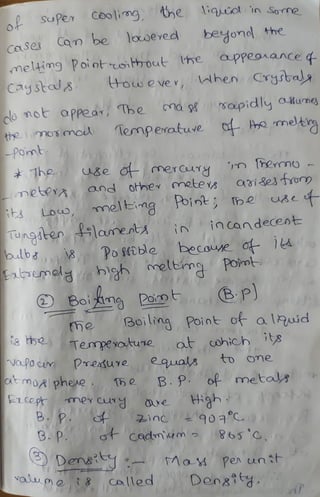 of super cooling, the liquid in some
cases can be lowered beyond the
melting point without the appearance of
Crystals However, When Crystals
do not appear, The mass rapidly assumes
the normal Temperature of the melting
-point.
* The use of mercury in Thermo-
-meters and other meters arises from
its Low, melting Point; The use of
Tungsten filaments in incandecent
bulbs is Possible because of its
Extremely high melting Point.
② Boiling Point (B.P)
The Boiling Point of a liquid
is the Temperature at which its
vapour Pressure equals to one
atmosphere. The B.P. of metals
Except mercury are High.
B.P. of zinc = 907°C
B.P. of cadmium = 865°C.
③ Density :- Mass per unit
volume is called Density.